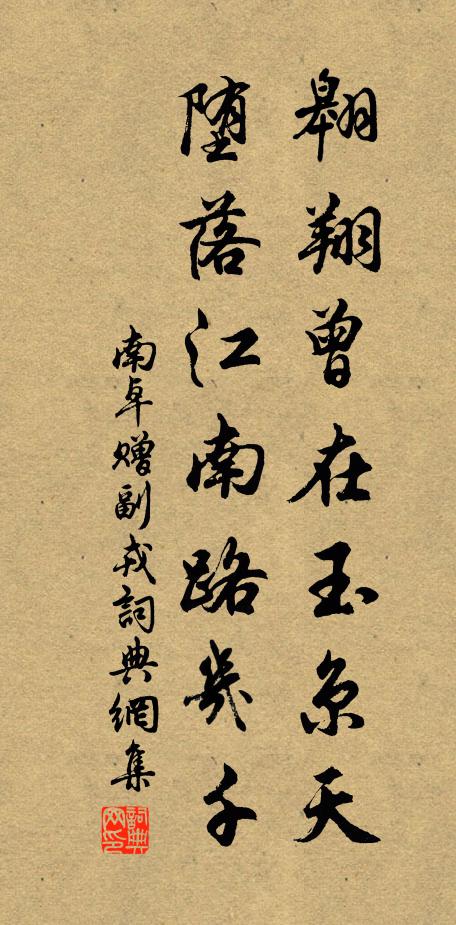 翱翔曾在玉京天
堕落江南路幾千
南卓赠副戎詞典網集
詞典网印